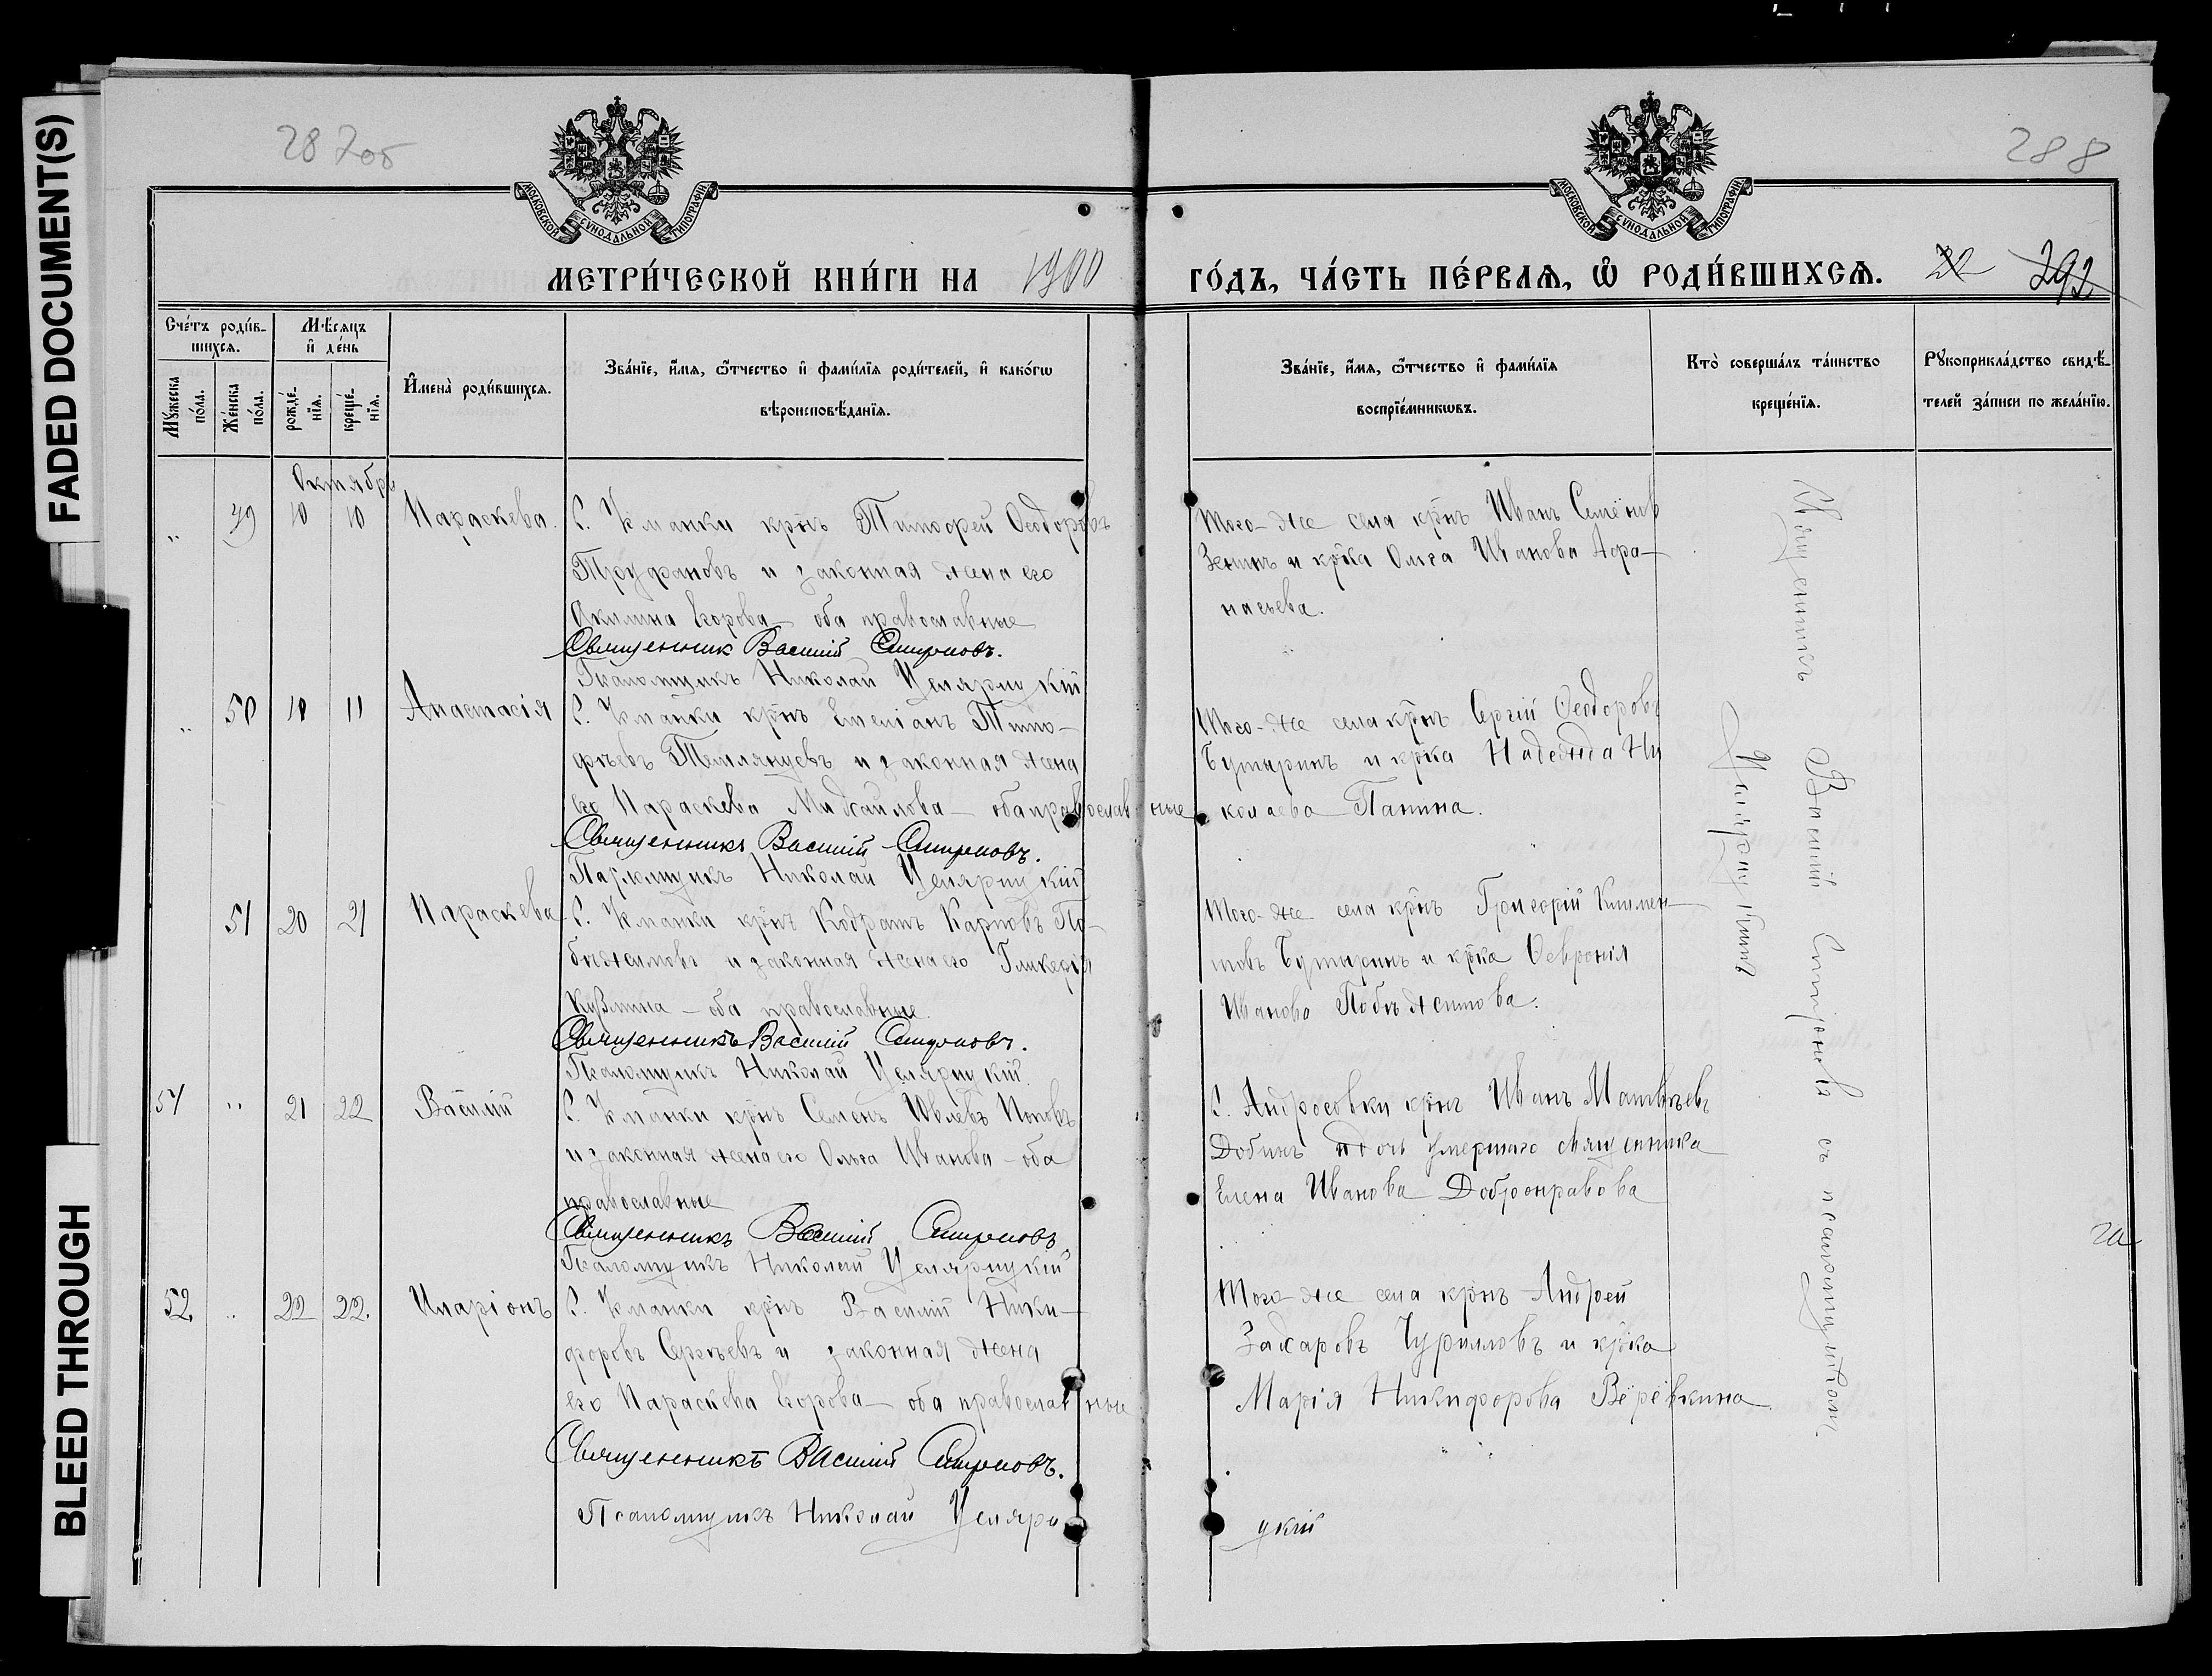 FADED DOCUMENT(S)
BLEED THROUGH
287об
288
МОСКОВСКОЙ СУНОДАЛЬНОЙ ТИПОГРАФІИ
МОСКОВСКОЙ СУНОДАЛЬНОЙ ТИПОГРАФІИ
МЕТРИ́ЧЕСКОЙ КНИ́ГИ НА 1900 ГО́ДЪ, ЧА́СТЬ ПЕ́РВАѦ, Ѡ҆ РОДИ́ВШИХСѦ. 22 292
Сче́тъ роди́в-
шихсѧ.
Мꙋ́жеска по́ла.
Же́нска по́ла.
Мѣ́сѧцъ и҆ де́нь
рожде́-нїѧ.
креще́-нїѧ.
И҆мена̀ роди́вшихсѧ.
Зва́нїе, и҆́мѧ, ѻ҆́тчество и҆ фами́лїѧ роди́телей, и҆ како́гѡ
вѣроисповѣ́данїѧ.
Зва́нїе, и҆́мѧ, ѻ҆́тчество и҆ фами́лїѧ
воспрїе́мникѡвъ.
Кто̀ соверша́лъ та́инство
креще́нїѧ.
Рꙋкоприкла́дство свидѣ́-
телей за́писи по жела́нїю.
Октябрь
" 49 10 10 Параскева. С. Уманки крнъ Тимофей Ѳеодоровъ
Труфановъ и законная жена его
Акилина Егорова – оба православные
Священник Василій Смирновъ.
Псаломщикъ Николай Целярицкій
Того-же села крнъ Иванъ Семёнов
Зенинъ и крка Ольга Иванова Афа-
насьева.
" 50 10 11 Анастасія С. Уманки крнъ Емеліанъ Тимо-
фѣевъ Темлянцевъ и законная жена
его Параскева Михаилова – оба православные
Священникъ Василій Смирновъ.
Псаломщикъ Николай Целярицкій
Того-же села крнъ Сергій Ѳеодоровъ
Бутыринъ и крка Надежда Ни
колаева Панина.
51 20 21 Параскева С. Уманки крнъ Кодратъ Карповъ По-
бѣжимовъ и законная жена его Гликерія
Кузмина – оба православные.
Священникъ Василій Смирновъ.
Псаломщикъ Николай Целярицкій.
Того-же села крнъ Григорій Климен-
товъ Бутыринъ и крка Ѳевронія
Иванова Побѣжимова.
51 " 21 22 Василій С. Уманки крнъ Семенъ Ивлевъ Поповъ
и законная жена его Ольга Иванова – оба
православные
Священникъ Василій Смирновъ.
Псаломщикъ Николай Целярицкій
С. Андросовки крнъ Иванъ Матвѣевъ
Добинъ и дочь умершаго священника
Елена Иванова Добронравова
52. " 22 22. Иларіонъ С. Уманки крнъ Василій Ники-
форовъ Сергѣевъ и законная жена
его Параскева Егорова – оба православные
Священникъ Василій Смирновъ.
Псаломщикъ Николай Целярицкій
Того-же села крнъ Андрей
Захаровъ Чуриловъ и крка
Марія Никифорова Верёвкина
Священникъ Василій Смирновъ съ псаломщикомъ
Целярицкимъ